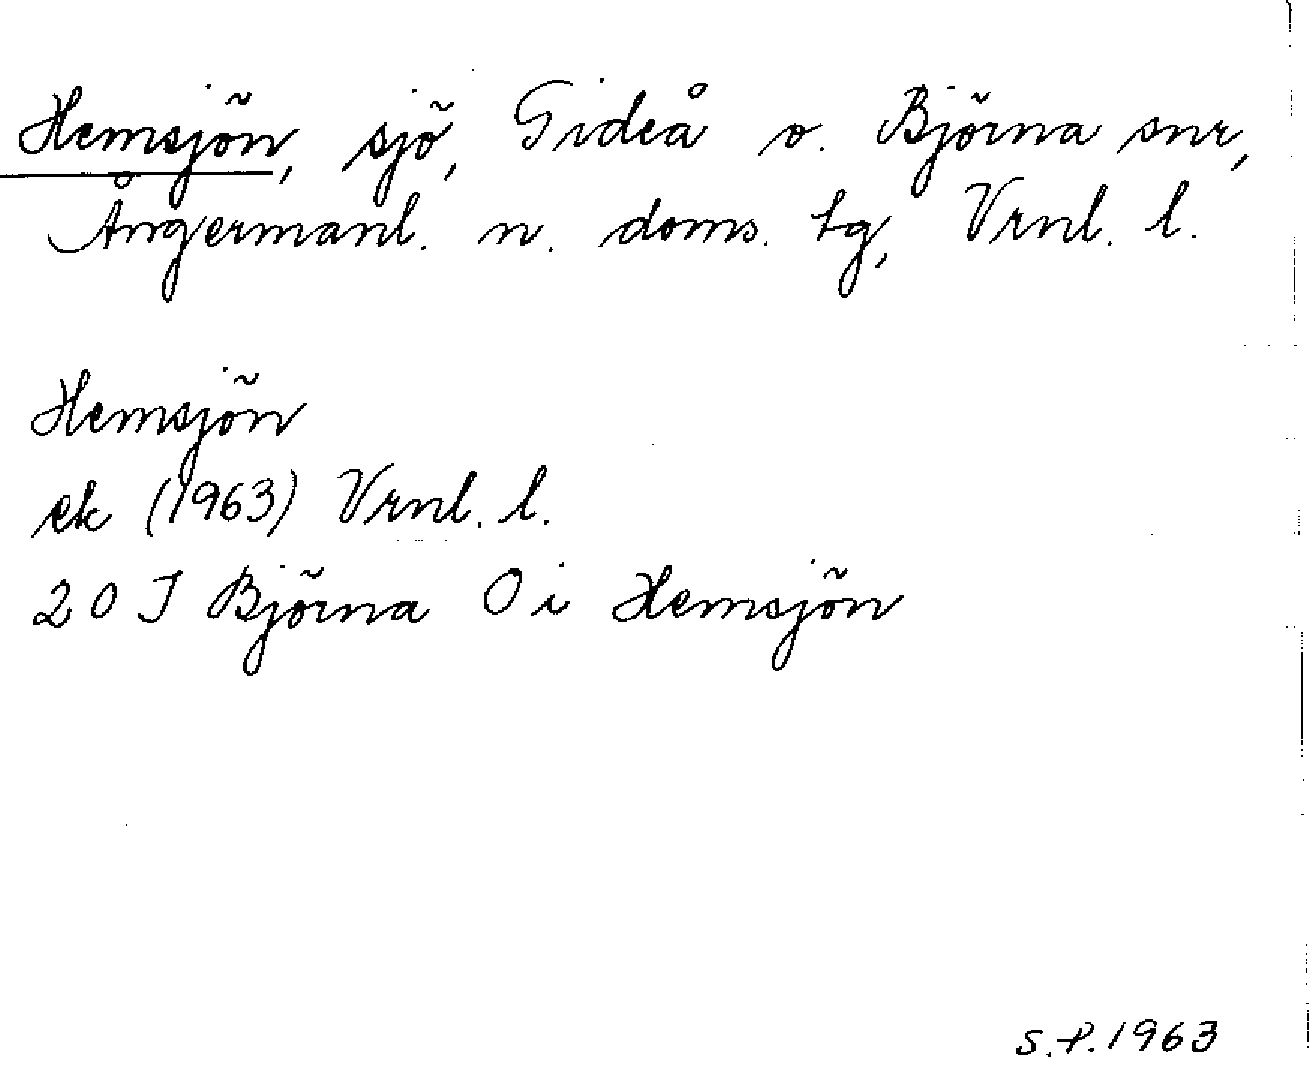 Hemsjön, sjö, Gideå o. Björna snr,
Ångermanl. n. doms. tg, Vrnl. l.
Hemsjön
ek (1963) Vrnl. l.
20 J Björna O i Hemsjön
S.P. 1963